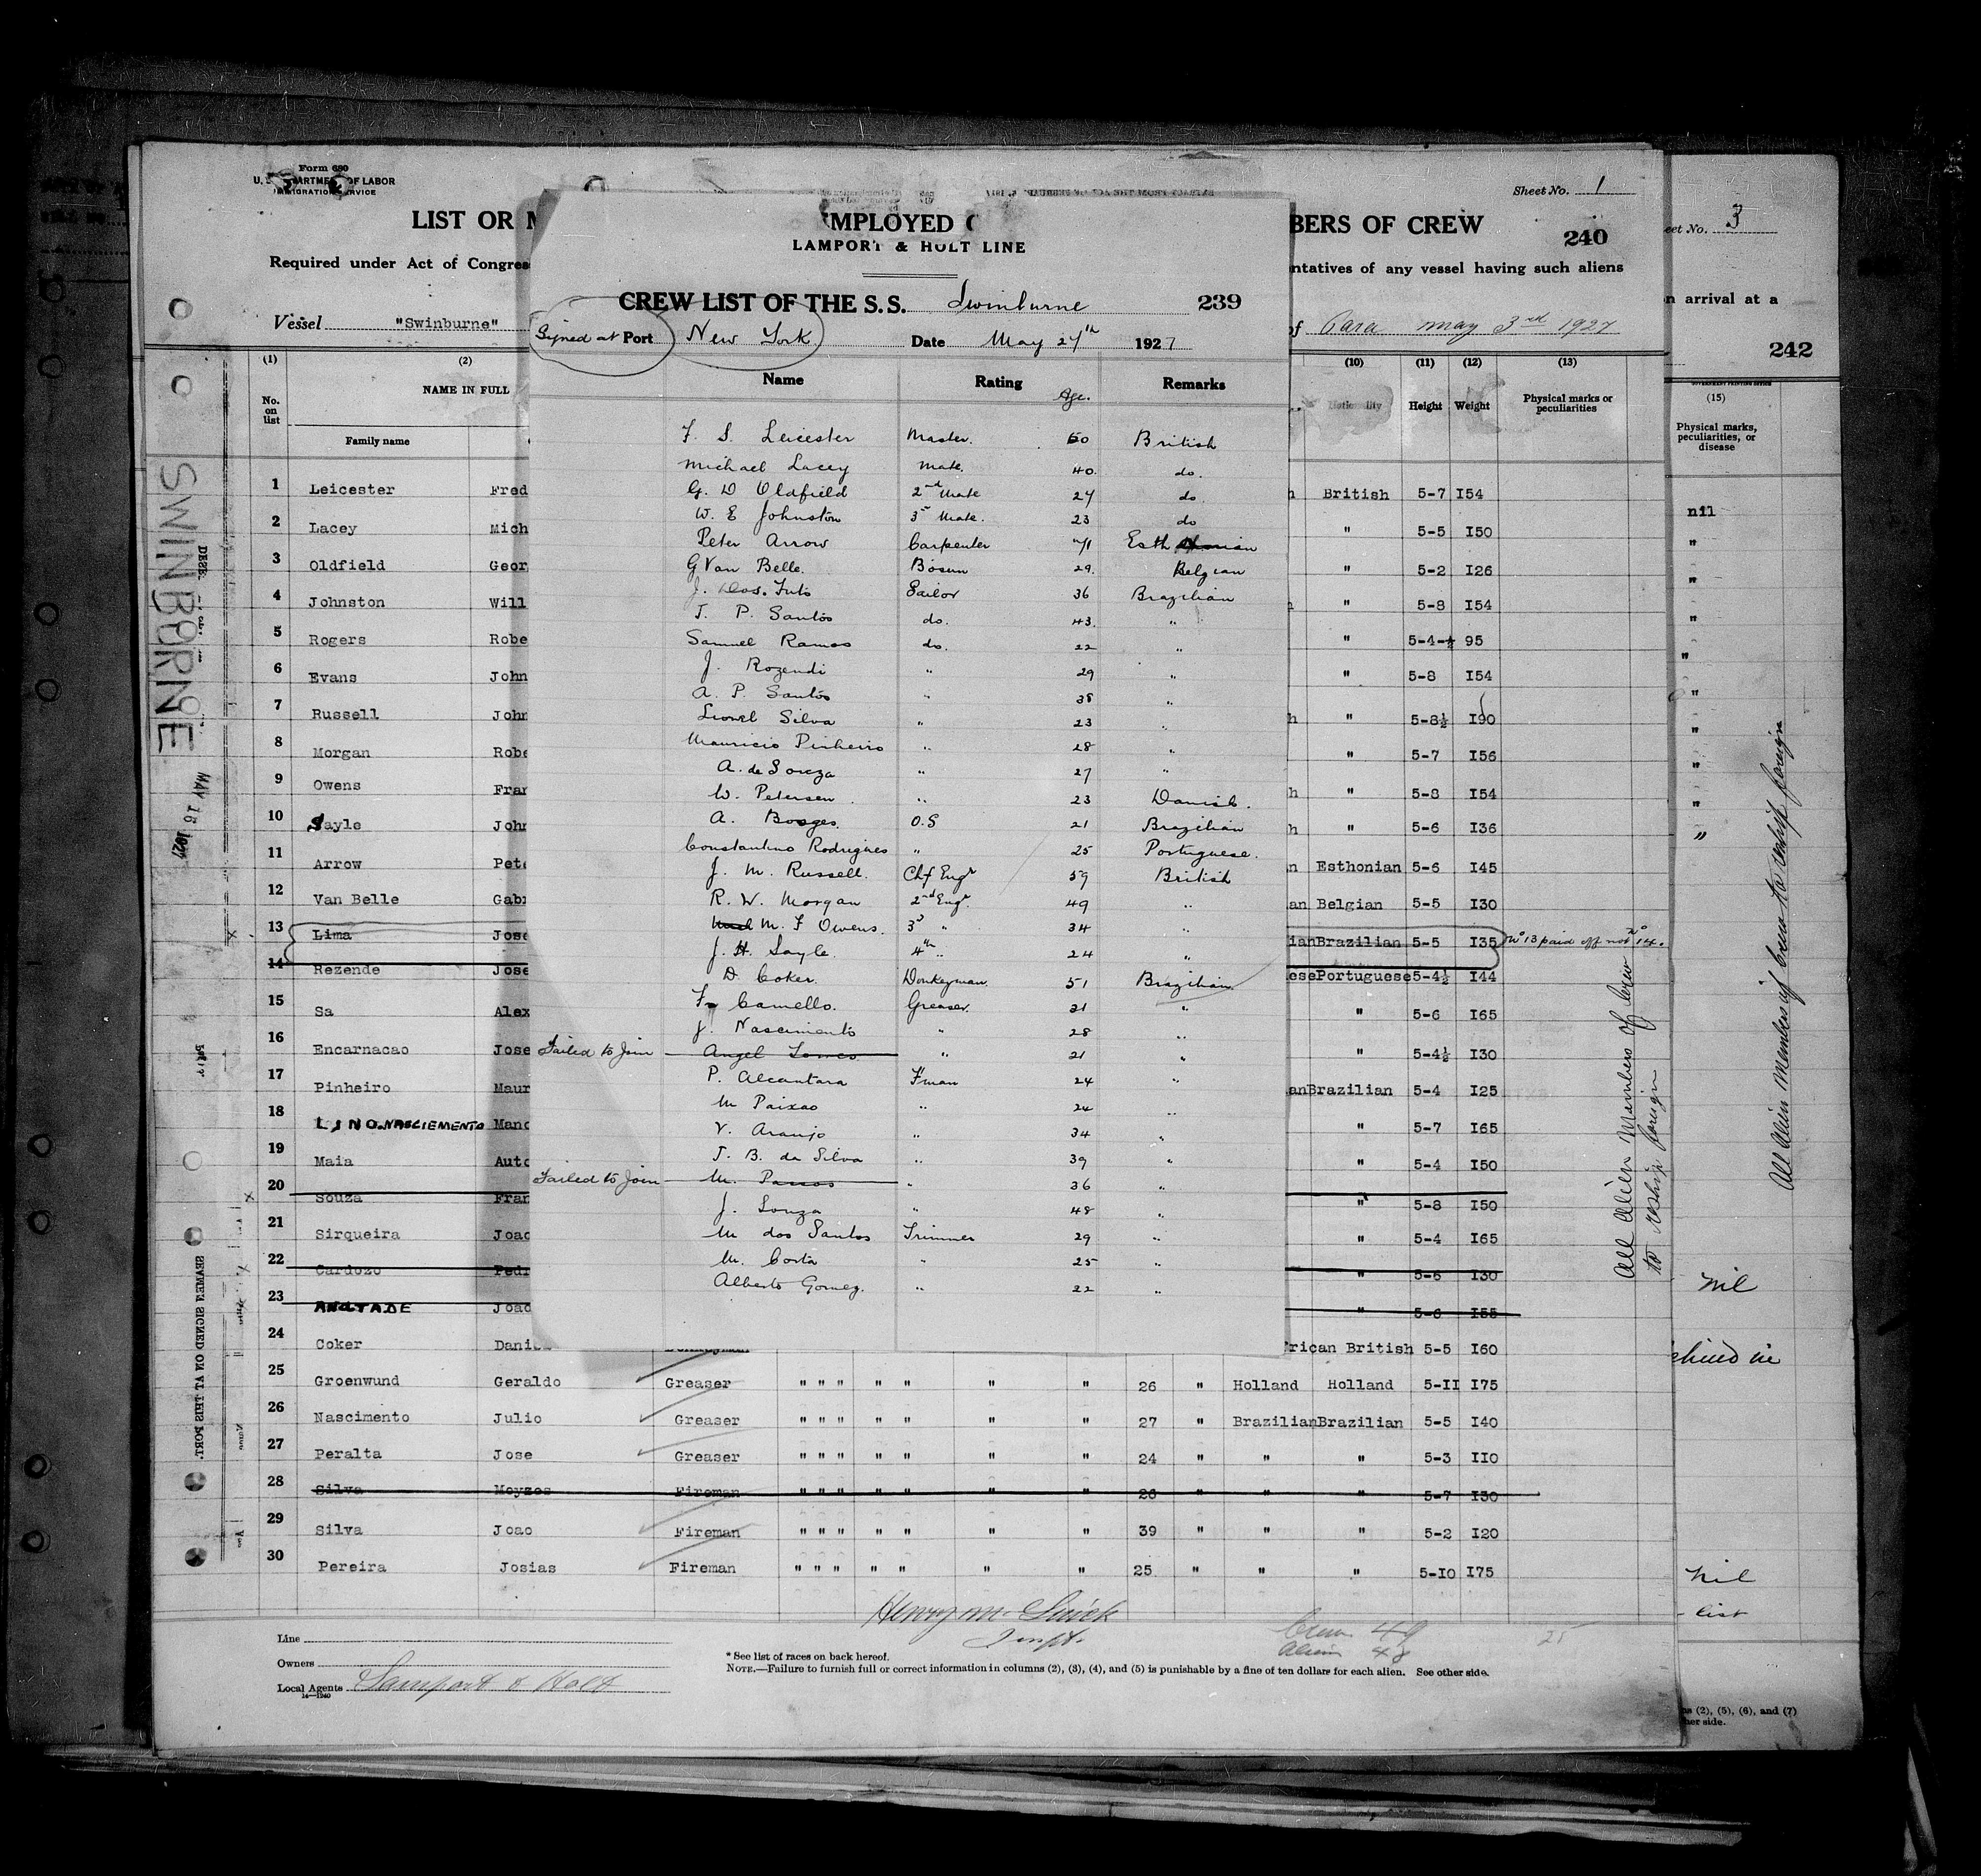 Form 680
U. S. DEPARTMENT OF LABOR
IMMIGRATION SERVICE
Sheet No. 1
LIST OR
BERS OF CREW
240
Required under Act of Congres
ntatives of any vessel having such aliens
Vessel "Swinburne"
of Para May 3rd 1927
EMPLOYED
LAMPORT & HOLT LINE
CREW LIST OF THE S. S. Swinburne 239
Signed at Port New York Date May 27th 1927
Name Rating Age. Remarks
F. S. Leicester Master. 50 British
Michael Lacey Mate. 40. do.
G. D Oldfield 2nd Mate 27 do
W. E Johnston 3rd Mate. 23 do
Peter Arrow Carpenter 41 Esthonian
G Van Belle. Bosun 29. Belgian
J. Dos. Sailor 36 Brazilian
T. P. Santos do. 43. "
Samuel Ramos do. 22 "
J. Rozendi " 29 "
A. P. Santos " 38 "
Lionel Silva " 23 "
Mauricio Pinheiro " 28 "
A. de Souza " 27 "
W. Petersen " 23 Danish.
A. Borges. O.S 21 Brazilian
Constantino Rodrigues " 25 Portuguese.
J. M. Russell. Chf Engr 59 British
R. W. Morgan 2nd Engr. 49 "
M. F Owens. 3rd " 34 "
J. H. Sayle. 4th " 24 "
D. Coker. Donkeyman. 51 Brazilian
F. Camello. Greaser. 31 "
J. Nascimento " 28 "
Failed to join Angel " 21 "
P. Alcantara F'man 24 "
M Paixao " 24 "
V. Araujo " 34 "
J. B. da Silva " 39 "
Failed to join M. " 36 "
J. Souza " 48 "
M dos Santos Trimmer 29 "
M. Costa " 25 "
Alberto Gomez. " 22 "
(1) (2) (10) (11) (12) (13)
No. on list NAME IN FULL Height Weight Physical marks or peculiarities
Family name
1 Leicester Fred British 5-7 I54
2 Lacey Mich " 5-5 I50
3 Oldfield Geor " 5-2 I26
4 Johnston Will " 5-8 I54
5 Rogers Robe " 5-4-½ 95
6 Evans John " 5-8 I54
7 Russell John " 5-8½ I90
8 Morgan Robe " 5-7 I56
9 Owens Fran " 5-8 I54
10 Sayle John " 5-6 I36
11 Arrow Pete Esthonian 5-6 I45
12 Van Belle Gabr an Belgian 5-5 I30
13 Lima Jose ian Brazilian 5-5 I35 No 13 paid off not No 14.
14 Rezende Jose ese Portuguese 5-4½ I44
15 Sa Alex " 5-6 I65
16 Encarnacao Jose " 5-4½ I30
17 Pinheiro Maur an Brazilian 5-4 I25
18 LINO NASCIEMENTO Mano " 5-7 I65
19 Maia Auto " 5-4 I50
20 Souza Fran " 5-8 I50
21 Sirqueira Joao " 5-4 I65
22 Cardozo Pedr " 5-6 I30
23 ANDTADE Joao " 5-6 I55
24 Coker Dani Donkeyman rican British 5-5 I60
25 Groenwund Geraldo Greaser " " " " " " " 26 " Holland Holland 5-II I75
26 Nascimento Julio Greaser " " " " " " " 27 " Brazilian Brazilian 5-5 I40
27 Peralta Jose Greaser " " " " " " " 24 " " " 5-3 II0
28 Silva Moyzes Fireman " " " " " " " 26 " " " 5-7 I30
29 Silva Joao Fireman " " " " " " " 39 " " " 5-2 I20
30 Pereira Josias Fireman " " " " " " " 25 " " " 5-I0 I75
All Alien Members of Crew
to reship foreign
SWINBURNE
MAY 16 1927
SEAMEN SIGNED ON AT THIS PORT.
Line
Owners
Local Agents Lamport & Holt
14—1940
Crew 49
Alien 48
25
* See list of races on back hereof.
NOTE.—Failure to furnish full or correct information in columns (2), (3), (4), and (5) is punishable by a fine of ten dollars for each alien. See other side.
eet No. 3
n arrival at a
242
GOVERNMENT PRINTING OFFICE
(15)
Physical marks, peculiarities, or disease
nil
"
"
"
"
"
"
"
"
"
All Alien Members of Crew to reship foreign
Nil
Nil
list
ns (2), (5), (6), and (7)
her side.